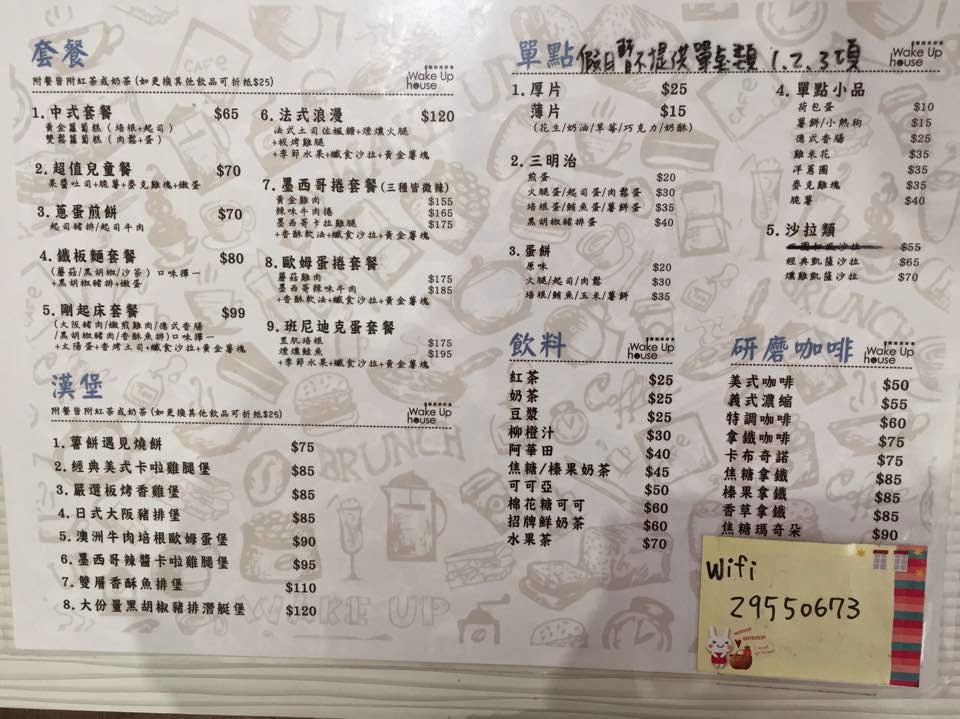 套餐
附餐皆附紅茶或奶茶(如更換其他飲品可折抵$25)
Wake Up house
1.中式套餐 $65
黃金蘿蔔糕(培根+起司)
雙鬆蘿蔔糕(肉鬆+蛋)
2.超值兒童餐 $70
果醬吐司+脆薯+麥克雞塊+嫩蛋
3.蔥蛋煎餅 $70
起司豬排/起司牛肉
4.鐵板麵套餐 $80
(蘑菇/黑胡椒/沙茶)口味擇一
+黑胡椒豬排+嫩蛋
5.剛起床套餐 $99
(大阪豬肉/嫩煎雞肉/德式香腸
/黑胡椒豬肉/香酥魚排)口味擇一
+太陽蛋+香烤土司+纖食沙拉+黃金薯塊
6.法式浪漫 $120
法式土司佐楓糖+煙燻火腿
+板烤雞腿
+季節水果+纖食沙拉+黃金薯塊
7.墨西哥捲套餐(三種皆微辣)
黃金雞肉 $155
辣味牛肉捲 $165
墨西哥卡拉雞腿 $175
+香酥軟法+纖食沙拉+黃金薯塊
8.歐姆蛋捲套餐
蘑菇雞肉 $175
墨西哥辣味牛肉 $185
+香酥軟法+纖食沙拉+黃金薯塊
9.班尼迪克蛋套餐
里肌培根 $175
煙燻鮭魚 $195
+季節水果+纖食沙拉+黃金薯塊
漢堡
附餐皆附紅茶或奶茶(如更換其他飲品可折抵$25)
Wake Up house
1.薯餅遇見燒餅 $75
2.經典美式卡啦雞腿堡 $85
3.嚴選板烤香雞堡 $85
4.日式大阪豬排堡 $85
5.澳洲牛肉培根歐姆蛋堡 $90
6.墨西哥辣醬卡啦雞腿堡 $95
7.雙層香酥魚排堡 $110
8.大份量黑胡椒豬排潛艇堡 $120
單點 假日暫不提供單點類 1.2.3項
Wake Up house
1.厚片 $25
薄片 $15
(花生/奶油/草莓/巧克力/奶酥)
2.三明治
煎蛋 $20
火腿蛋/起司蛋/肉鬆蛋 $30
培根蛋/鮪魚蛋/薯餅蛋 $35
黑胡椒豬排蛋 $40
3.蛋餅
原味 $20
火腿/起司/肉鬆 $30
培根/鮪魚/玉米/薯餅 $35
4.單點小品
荷包蛋 $10
薯餅/小熱狗 $15
德式香腸 $25
雞米花 $35
洋蔥圈 $35
麥克雞塊 $35
脆薯 $40
5.沙拉類
$55
經典凱薩沙拉 $65
燻雞凱薩沙拉 $70
飲料
Wake Up house
紅茶 $25
奶茶 $25
豆漿 $25
柳橙汁 $30
阿華田 $40
焦糖/榛果奶茶 $45
可可亞 $50
棉花糖可可 $60
招牌鮮奶茶 $60
水果茶 $70
研磨咖啡
Wake Up house
美式咖啡 $50
義式濃縮 $55
特調咖啡 $60
拿鐵咖啡 $75
卡布奇諾 $75
焦糖拿鐵 $85
榛果拿鐵 $85
香草拿鐵 $85
焦糖瑪奇朵 $90
Wifi
29550673